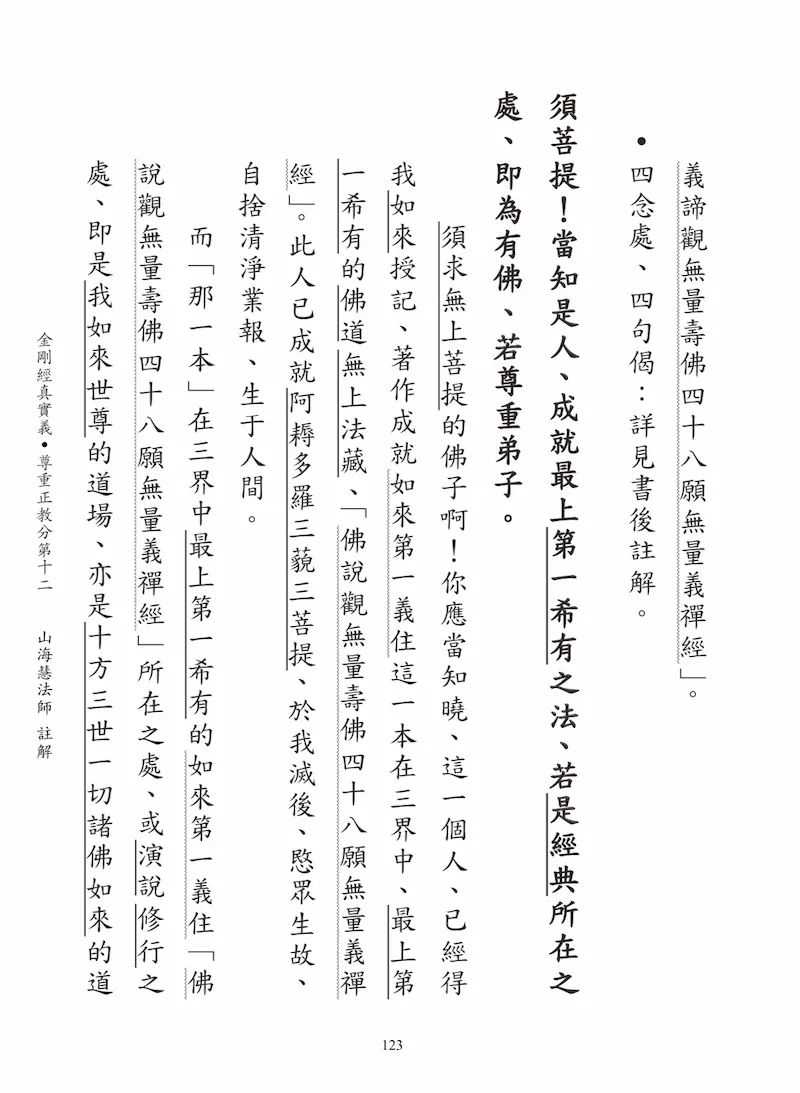 義諦觀無量壽佛四十八願無量義禪經」。
•四念處、四句偈：詳見書後註解。
須菩提！當知是人、成就最上第一希有之法、若是經典所在之
處、即為有佛、若尊重弟子。
須求無上菩提的佛子啊！你應當知曉、這一個人、已經得
我如來授記、著作成就如來第一義住這一本在三界中、最上第
一希有的佛道無上法藏、「佛說觀無量壽佛四十八願無量義禪
經」。此人已成就阿耨多羅三藐三菩提、於我滅後、愍眾生故、
自捨清淨業報、生于人間。
而「那一本」在三界中最上第一希有的如來第一義住「佛
說觀無量壽佛四十八願無量義禪經」所在之處、或演說修行之
處、即是我如來世尊的道場、亦是十方三世一切諸佛如來的道
金剛經真實義•尊重正教分第十二 山海慧法師 註解
123